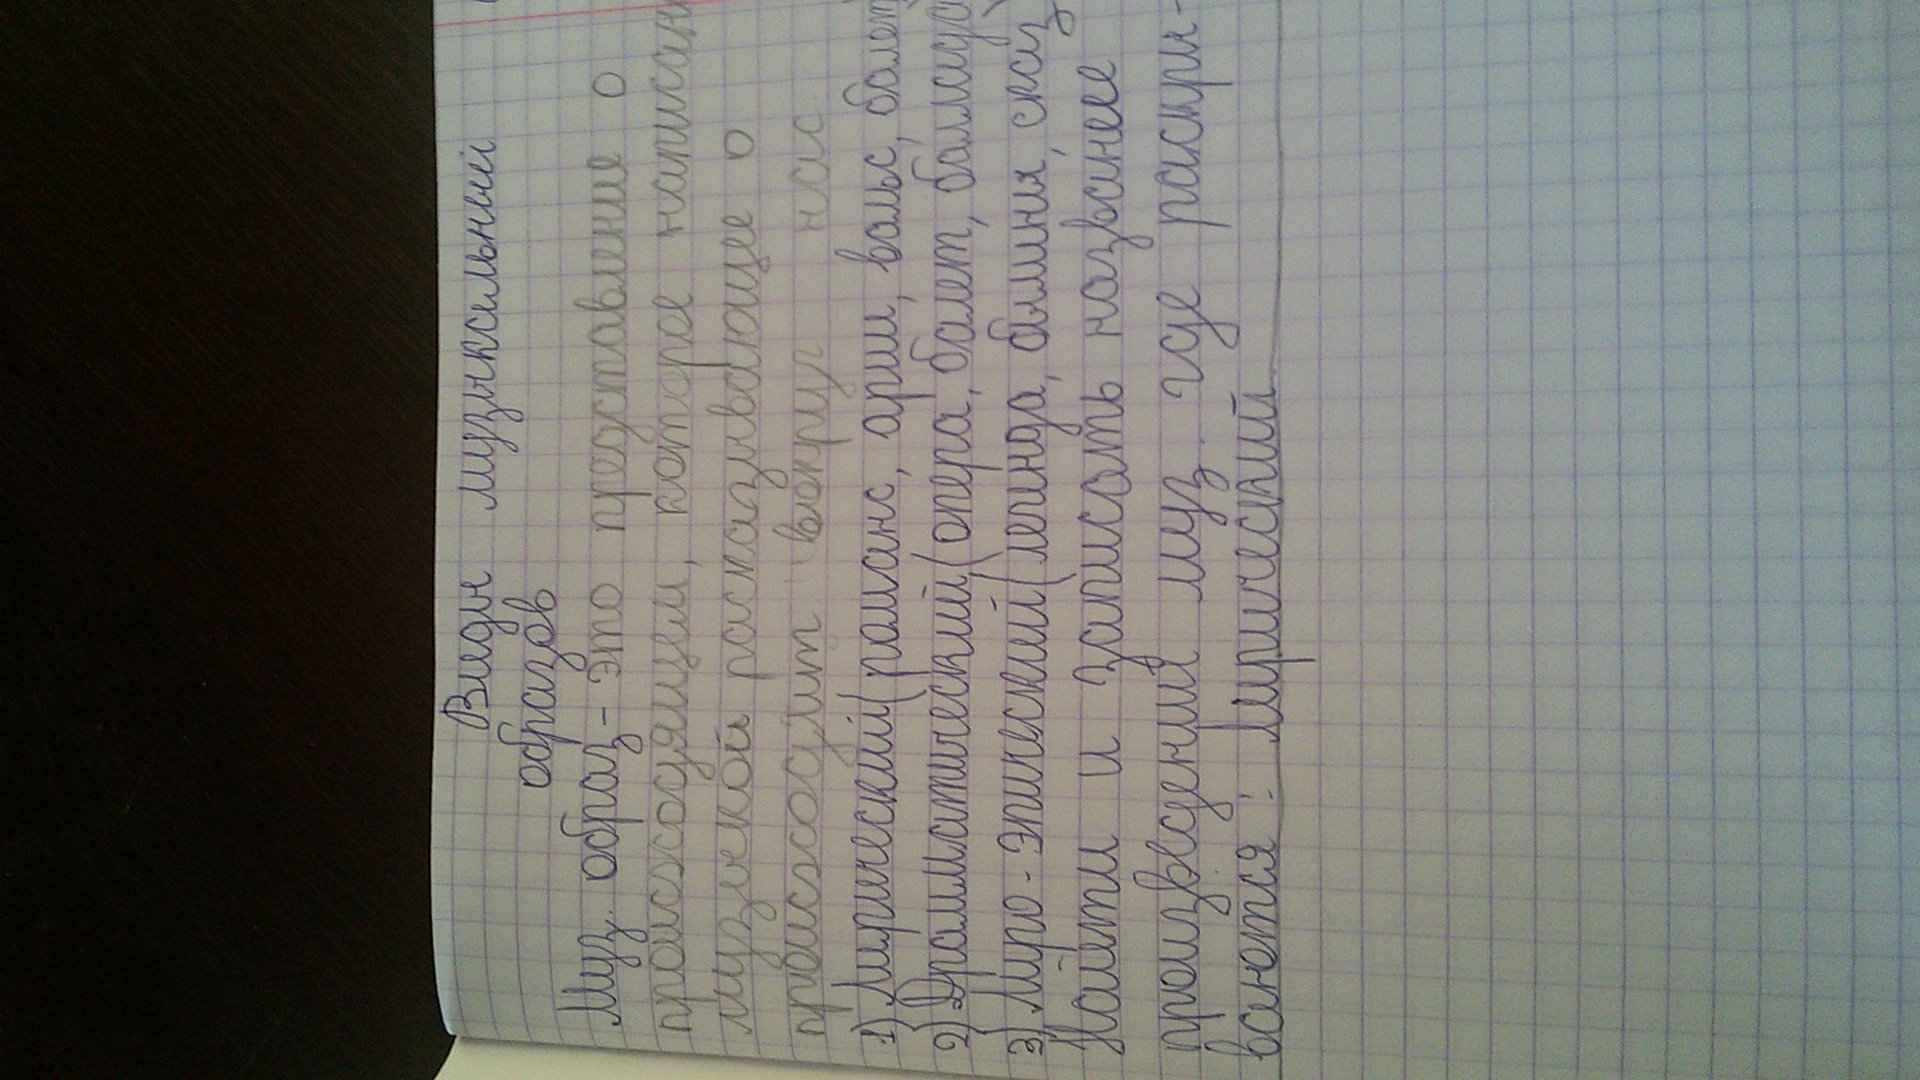 Виды музыкальный
образов
Муз. образ - это представление о
происходящем, которое написан
музыкой расказывающее о
происходит вокруг нас
1) Лирический (романс, ария, вальс, балет
2) Драматический (опера, балет, балмуз
3) Лиро-эпический (легенда, былиня, сказ
Найти и записать название
произведений муз. где раскры-
вается: лирический